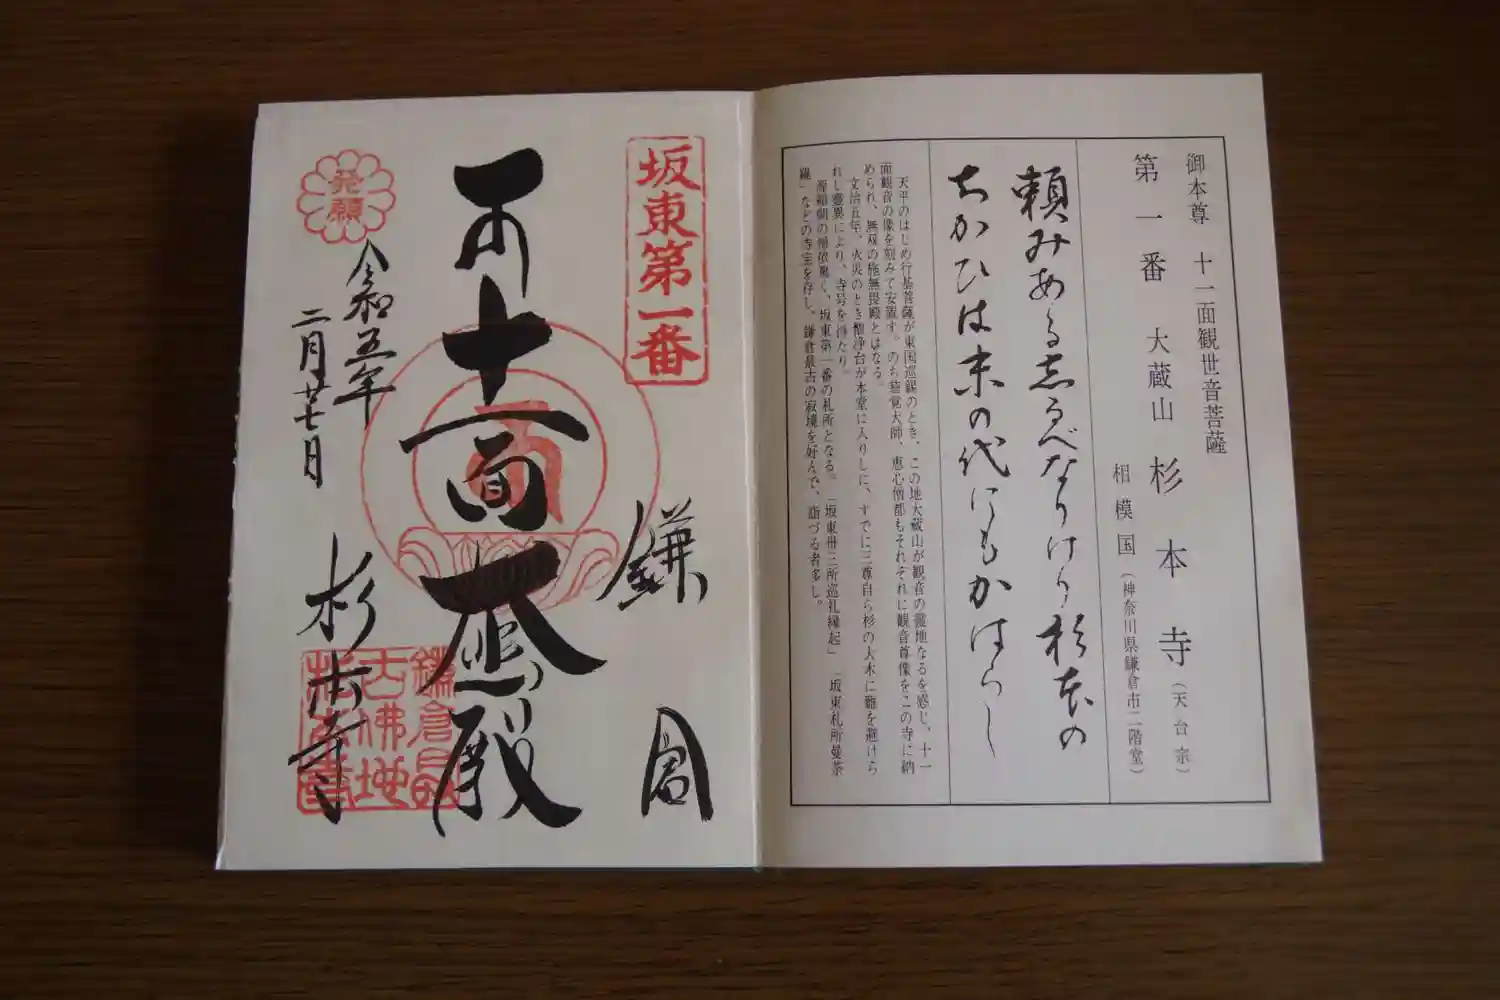 御本尊　十一面観世音菩薩
第一番　大蔵山　杉本寺（天台宗）
相模国（神奈川県鎌倉市二階堂）
頼みあるしるべなりけり杉本の
ちかひは末の代にもかはらじ
天平のはじめ行基菩薩が東国巡錫のとき、この地大蔵山が観音の霊地なるを感じ、十一
面観音の像を刻みて安置す。のち慈覚大師、恵心僧都もそれぞれに観音尊像をこの寺に納
められ、無双の施無畏殿とはなる。
文治五年、火災のとき僧浄台が本堂に入りしに、すでに三尊自ら杉の大木に難を避けら
れし霊異により、寺号を得たり。
源頼朝の帰依篤く、坂東第一番の札所となる。「坂東卅三所巡礼縁起」「坂東札所曼荼
羅」などの寺宝を存し、鎌倉最古の寂境を好んで、詣づる者多し。
坂東第一番
鎌
十一面
殿
発願
令和五年
二月廿七日
杉本寺